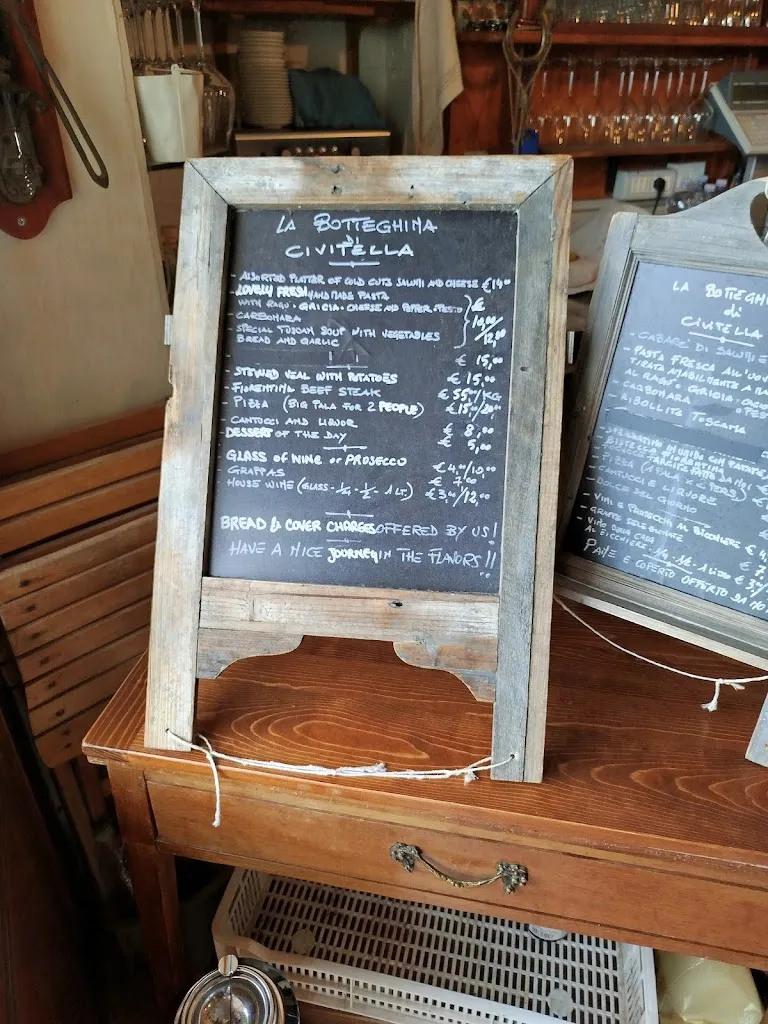 LA BOTTEGHINA
DI
CIVITELLA
- ASSORTED PLATTER OF COLD CUTS SALUMI AND CHEESE €14,00
- LOVELY FRESH HANDMADE PASTA
WITH RAGÙ - GRICIA - CHEESE AND PEPPER - PESTO €
- CARBONARA 10,00/
- SPECIAL TUSCAN SOUP WITH VEGETABLES 12,00
BREAD AND GARLIC
€ 15,00
- STEWED VEAL WITH POTATOES € 15,00
- FIORENTINA BEEF STEAK € 55,00/KG
- PIZZA (BIG PALA FOR 2 PEOPLE) € 15,00/20,00
- CANTUCCI AND LIQUOR € 8,00
- DESSERT OF THE DAY € 5,00
- GLASS OF WINE OR PROSECCO € 4,00/10,00
- GRAPPAS € 7,00
- HOUSE WINE (GLASS - 1/4 - 1/2 - 1 LT.) € 3,00/12,00
BREAD & COVER CHARGES OFFERED BY US!
HAVE A NICE JOURNEY IN THE FLAVORS!!
LA BOTTEGHI
di
CIVITELLA
- PASTA FRESCA ALL'UOV
TIRATA AMABILMENTE A MA
AL RAGÙ - GRICIA -
- CARBONARA
- RIBOLLITA TOSCANA
- CANTUCCI E LIQUORE
- DOLCE DEL GIORNO
- VINI E PROSECCHI AL BICCHIERE € 4,0
- GRAPPE SELEZIONATE € 7,
- VINO DELLA CASA
AL BICCHIERE - 1/4 - 1/2 - 1 Litro € 3
PANE E COPERTO OFFERTO DA NOI